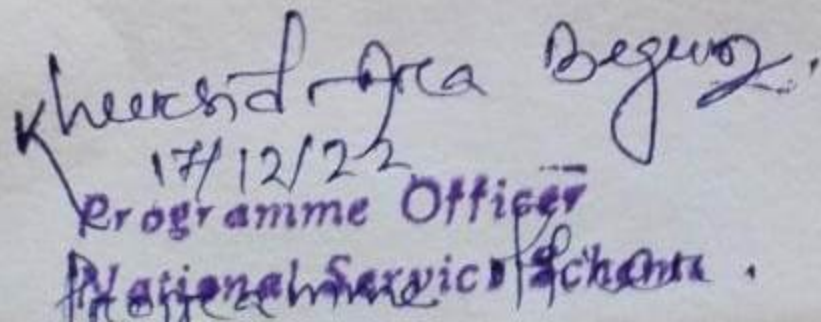 Khursid Ara Begum.
17/12/22
Programme Officer
National Service Scheme